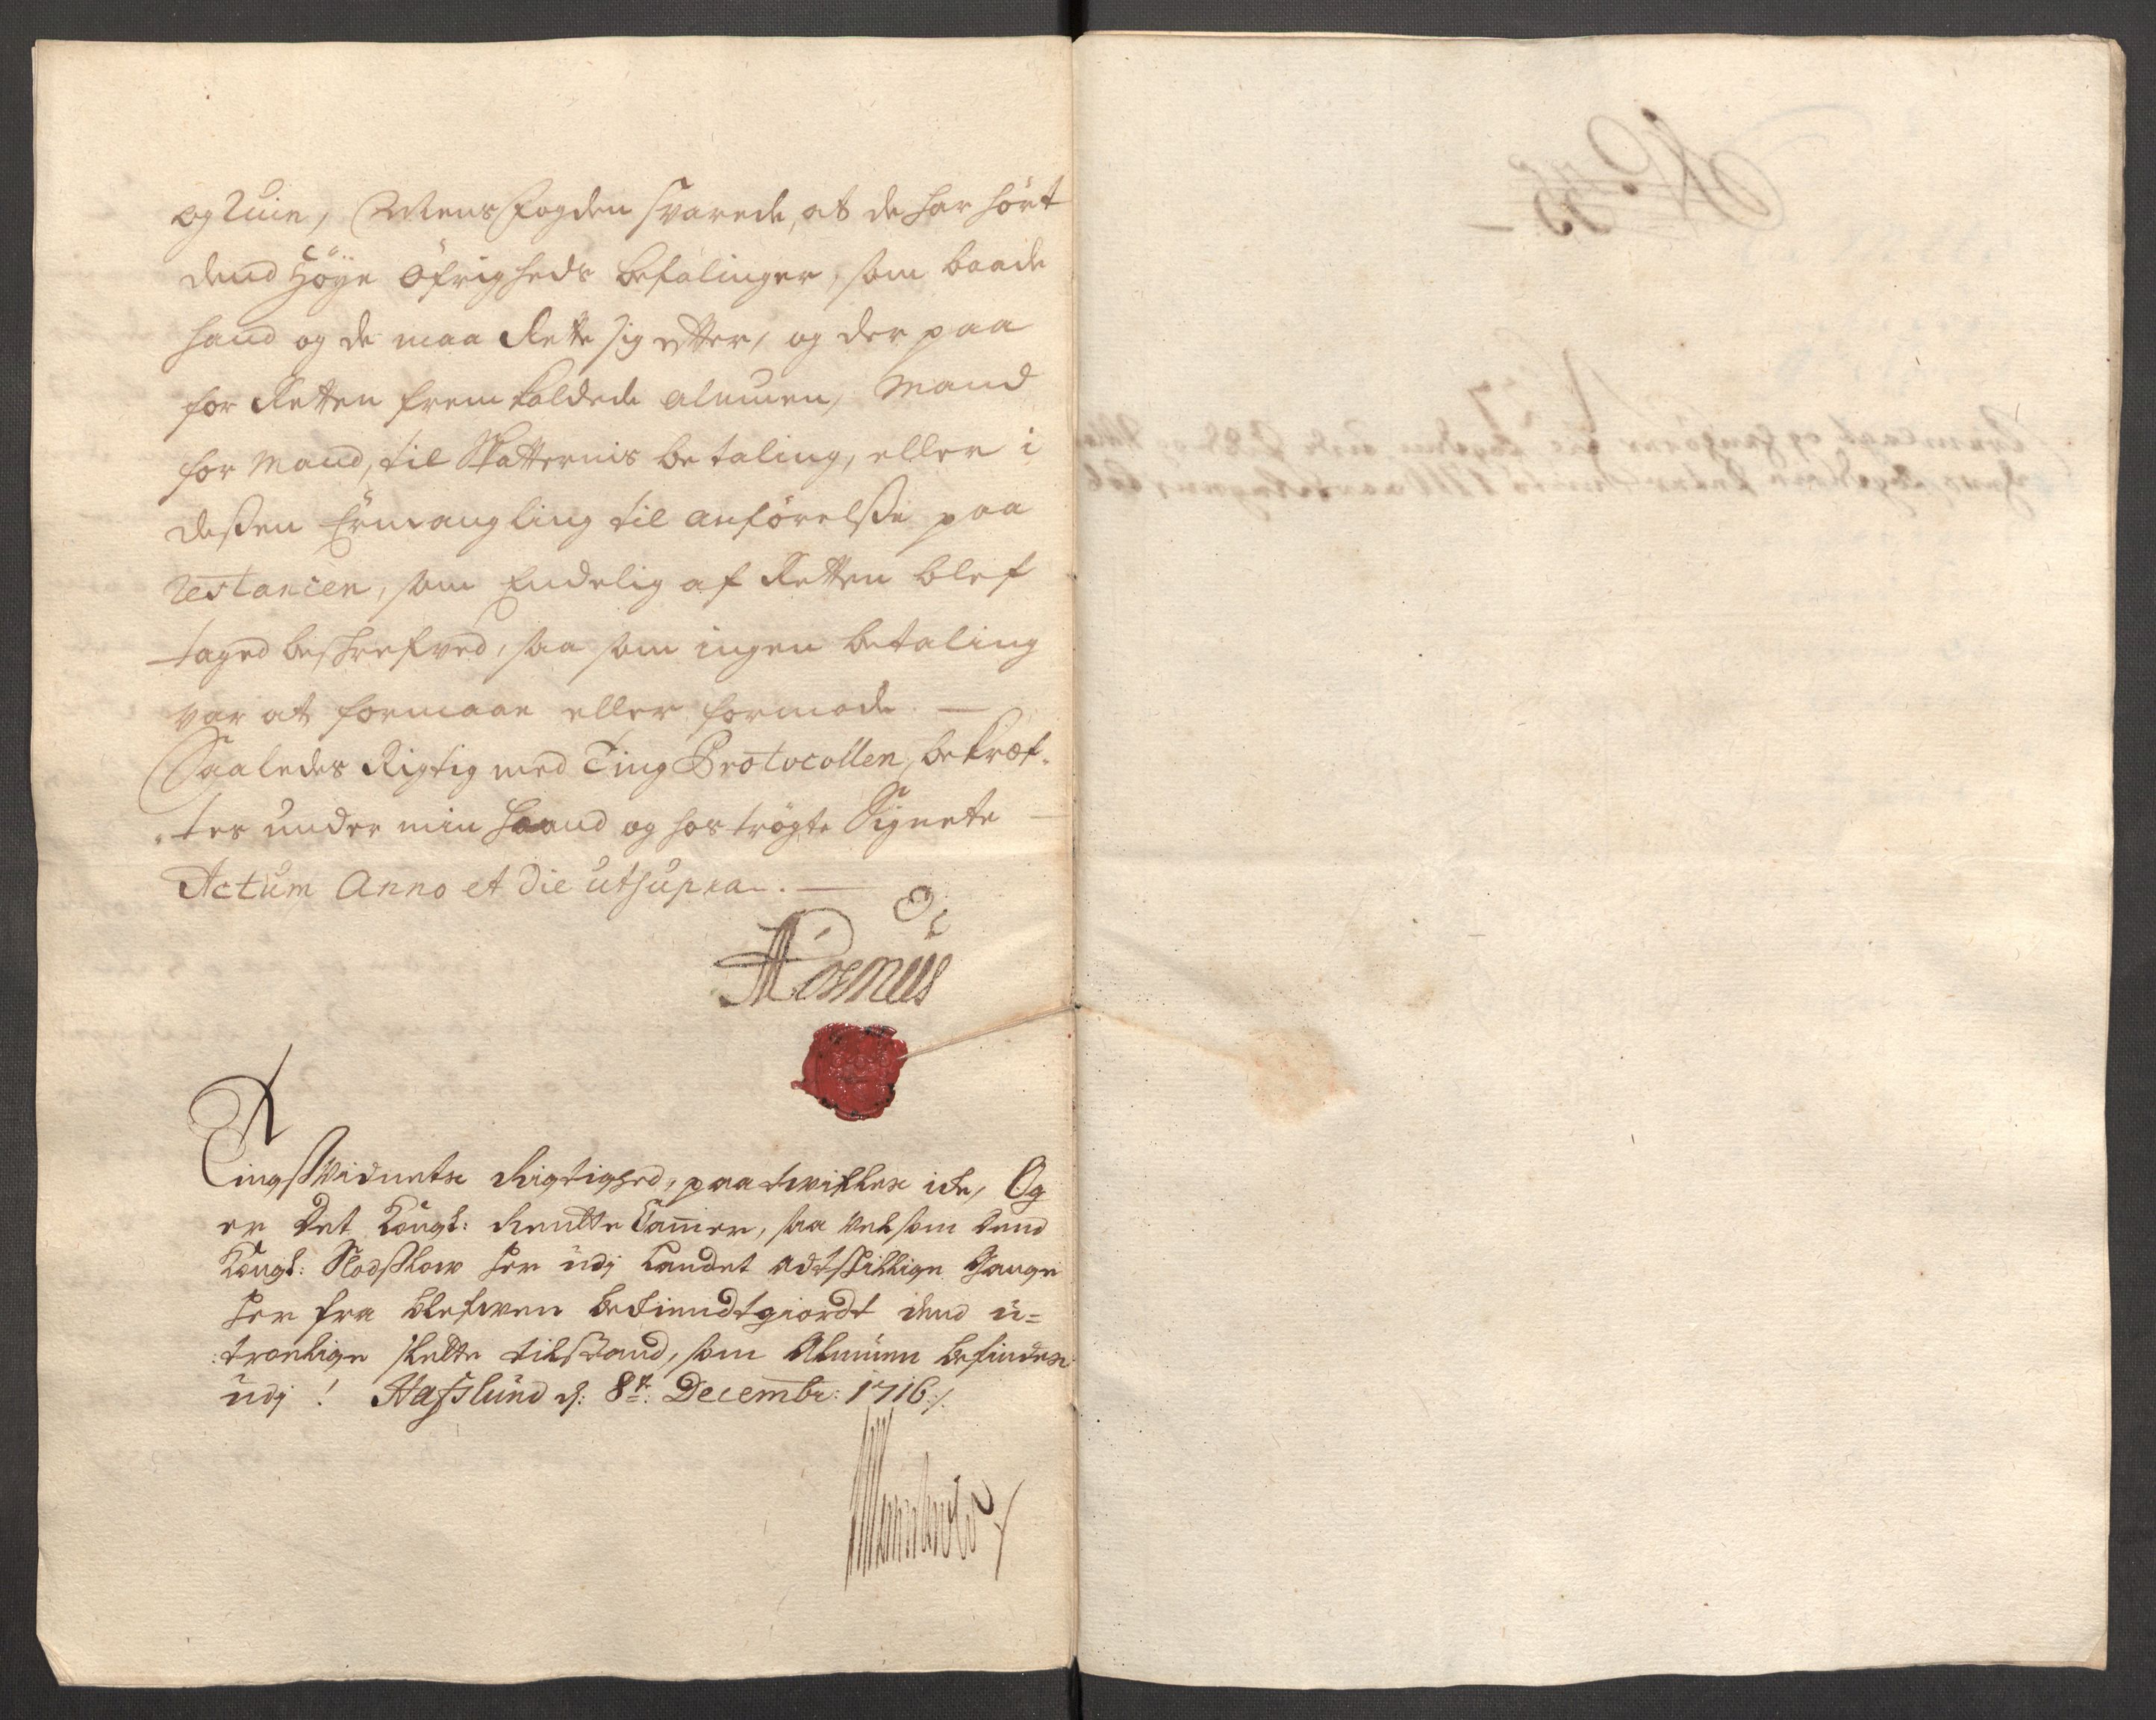 og Ruin, Mens fogden svarede, at de har hört
dend Höye Öfrigheds befalinger, som baade
hand og de maa Rette sig efter, og der paa
for Retten frem kaldede almuen, Mand
for Mand, til Skatternis betaling, eller i
dessen Ermangling til anförelsse paa
restancen, som Endelig af Retten blef
taged beskrefved, saa som ingen betaling
var at formaae eller formode. —
Saaledes Rigtig med Ting Protocollen, bekræf-
tes under min Haand og hoströgte Signete —
Actum Anno et Die utsupra. —
Tingsvidnets Rigtighed, paatvifles icke, Og
er Det Kongl: Rentte Cammer, saa vel som dend
Kongl: Slodsslow her udj Landet adtskillige Gange
her fra blefwen bekiendtgiordt dend u=
troelige slette tilstand, som Almuen befindes
udj! Hafslund d: 8de Decembr: 1716/.